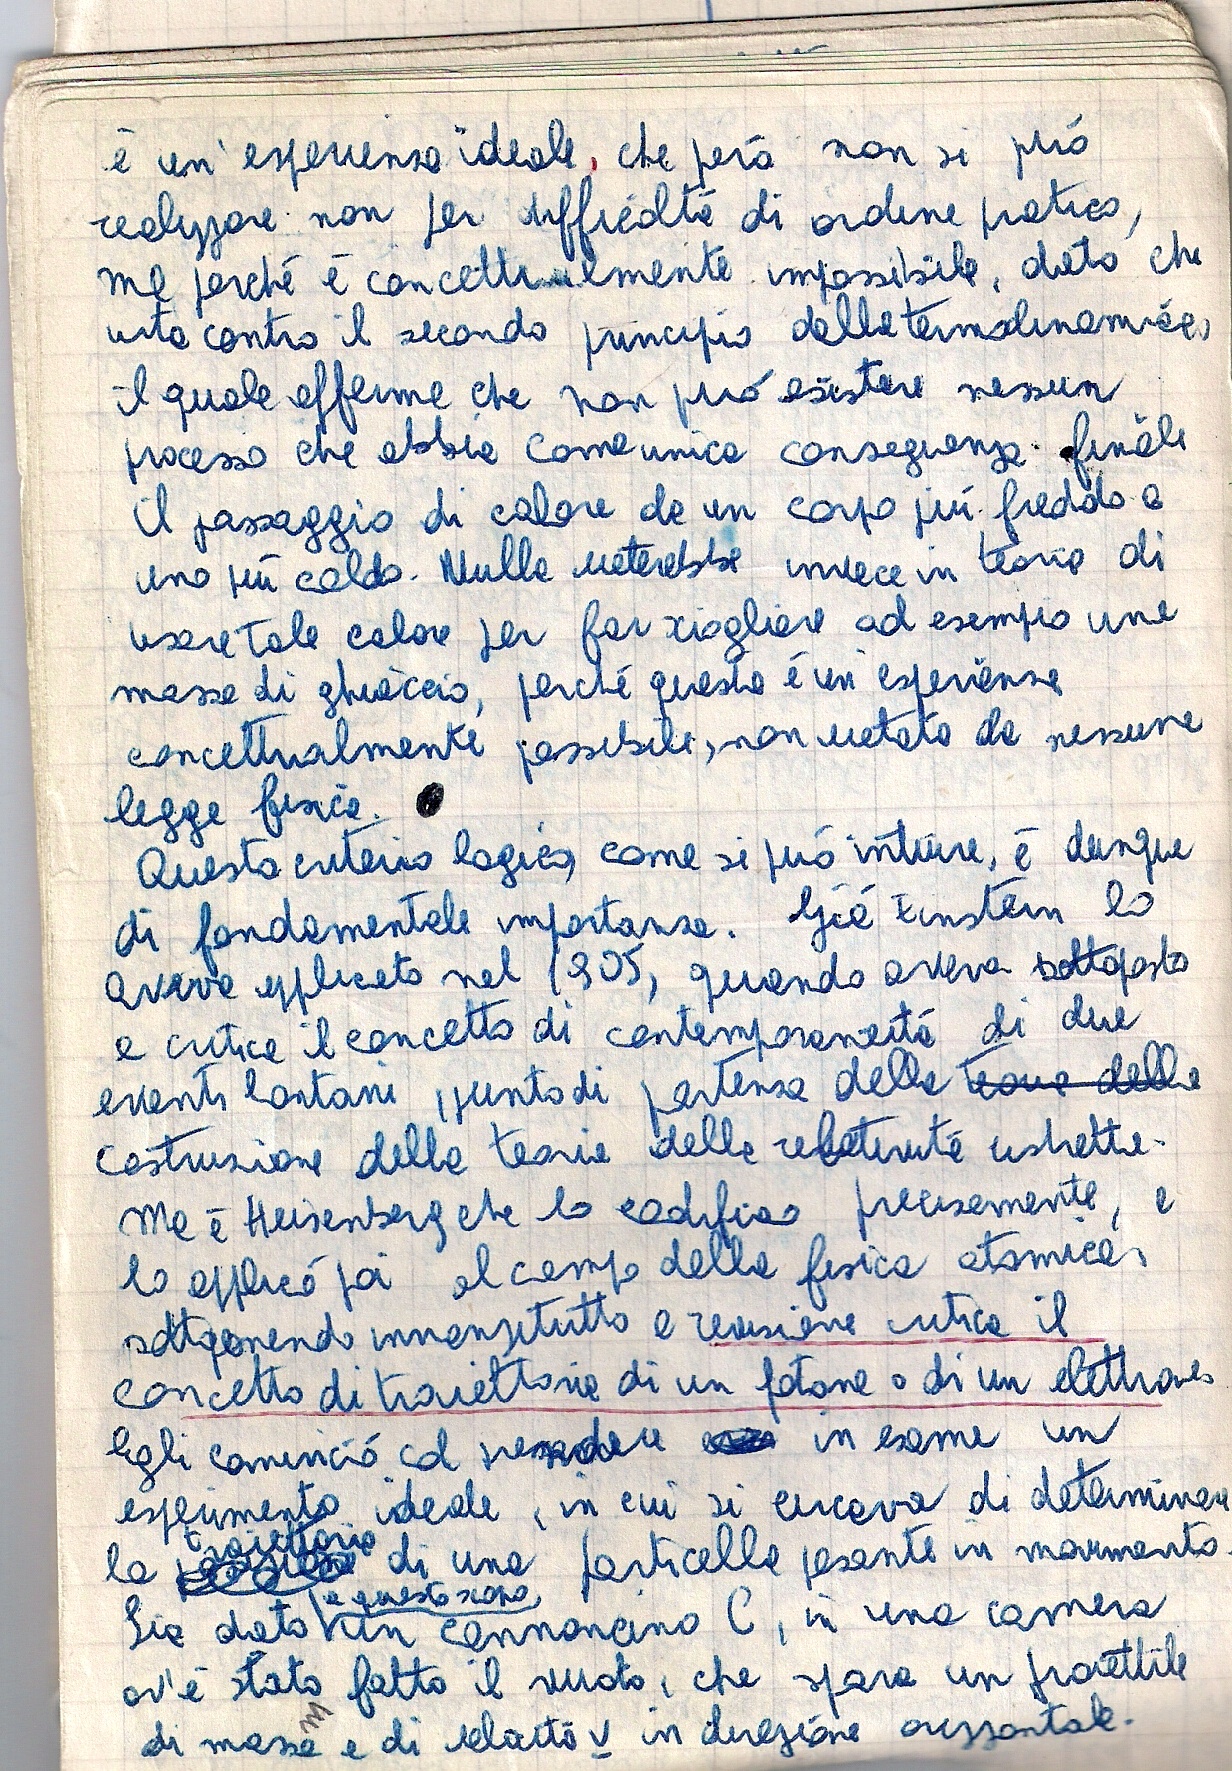 è un' esperienza ideale, che però non si può
realizzare non per difficoltà di ordine pratico,
ma perché è concettualmente impossibile, dato che
urta contro il secondo principio della termodinamica,
il quale afferma che non può esistere nessun
processo che abbia come unica conseguenza finale
il passaggio di calore da un corpo più freddo a
uno più caldo. Nulla vieterebbe invece in teoria di
usare tale calore per far sciogliere ad esempio una
massa di ghiaccio, perché questa è un' esperienza
concettualmente possibile, non vietata da nessuna
legge fisica.
Questo criterio logico, come si può intuire, è dunque
di fondamentale importanza. Già Einstein lo
aveva applicato nel 1905, quando aveva sottoposto
a critica il concetto di contemporaneità di due
eventi lontani, punto di partenza della teoria della
costruzione della teoria della relatività ristretta.
Ma è Heisenberg che lo codificò precisamente, e
lo applicò poi al campo della fisica atomica,
sottoponendo innanzitutto a revisione critica il
concetto di traiettoria di un fotone o di un elettrone.
Egli cominciò col prendere in esame un
esperimento ideale, in cui si cercava di determinare
la traiettoria di una particella pesante in movimento.
Sia dato a questo scopo un cannoncino C, in una camera
ov'è stato fatto il vuoto, che spara un proiettile
di massa m e di velocità v in direzione orizzontale.